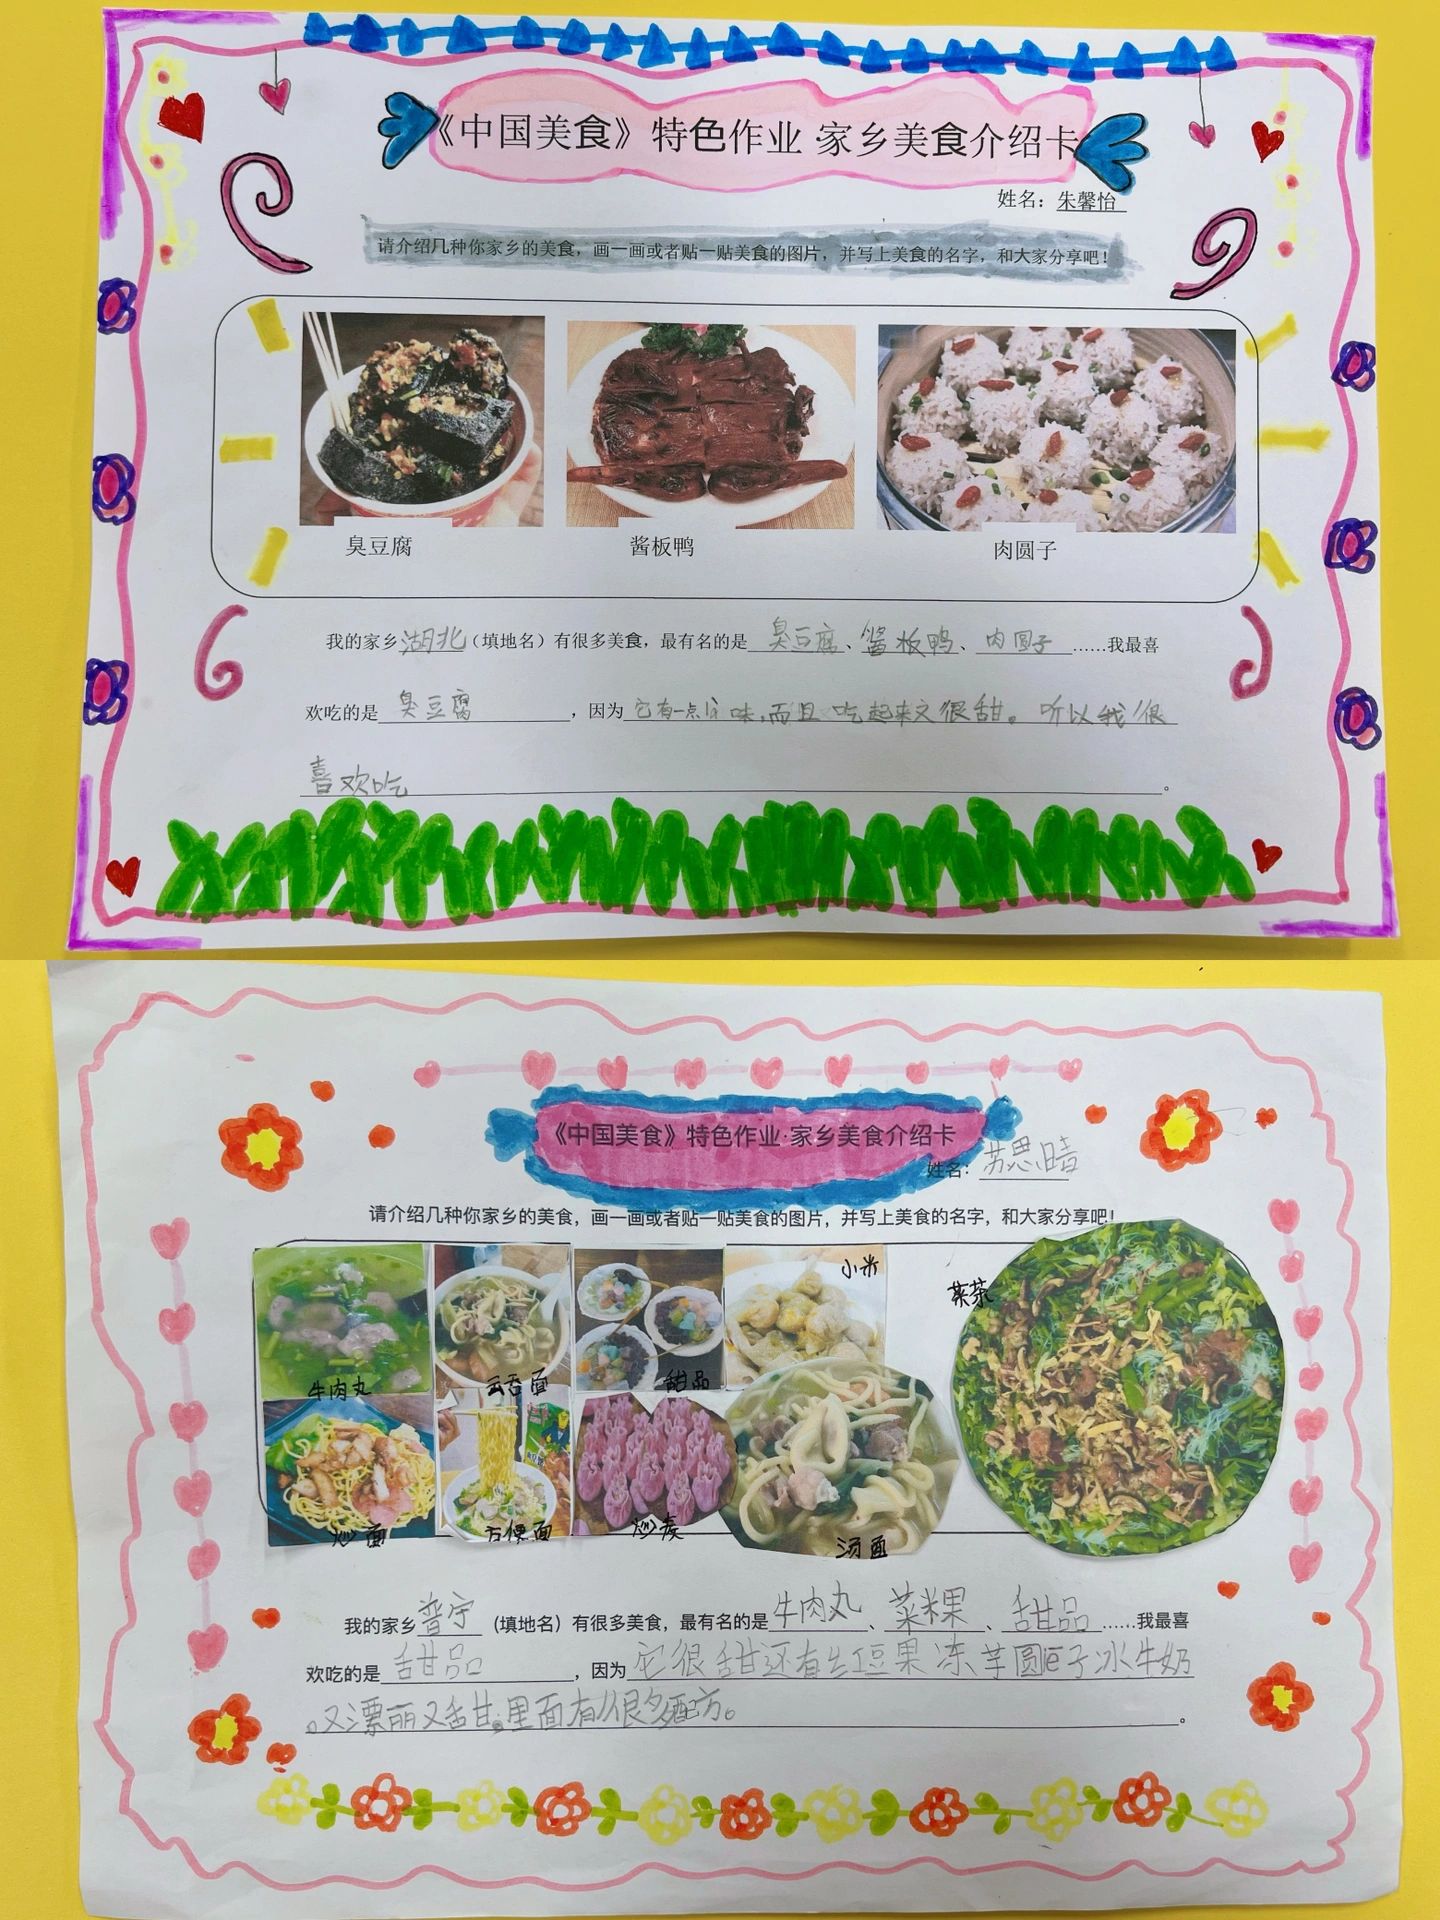 《中国美食》特色作业 家乡美食介绍卡
姓名：朱馨怡
请介绍几种你家乡的美食，画一画或者贴一贴美食的图片，并写上美食的名字，和大家分享吧！
臭豆腐 酱板鸭 肉圆子
我的家乡湖北（填地名）有很多美食，最有名的是臭豆腐、酱板鸭、肉圆子……我最喜
欢吃的是臭豆腐，因为它有一点 味，而且吃起来又很甜。所以我很
喜欢吃。
《中国美食》特色作业·家乡美食介绍卡
姓名：苏思晴
请介绍几种你家乡的美食，画一画或者贴一贴美食的图片，并写上美食的名字，和大家分享吧！
小米
菜茶
牛肉丸 云吞面 甜品
炒面 方便面 炒麦 汤面
我的家乡普宁（填地名）有很多美食，最有名的是牛肉丸、菜粿、甜品……我最喜
欢吃的是甜品，因为它很甜还有红豆果冻芋圆 子冰牛奶
。又漂丽又甜。里面有很多配方。。